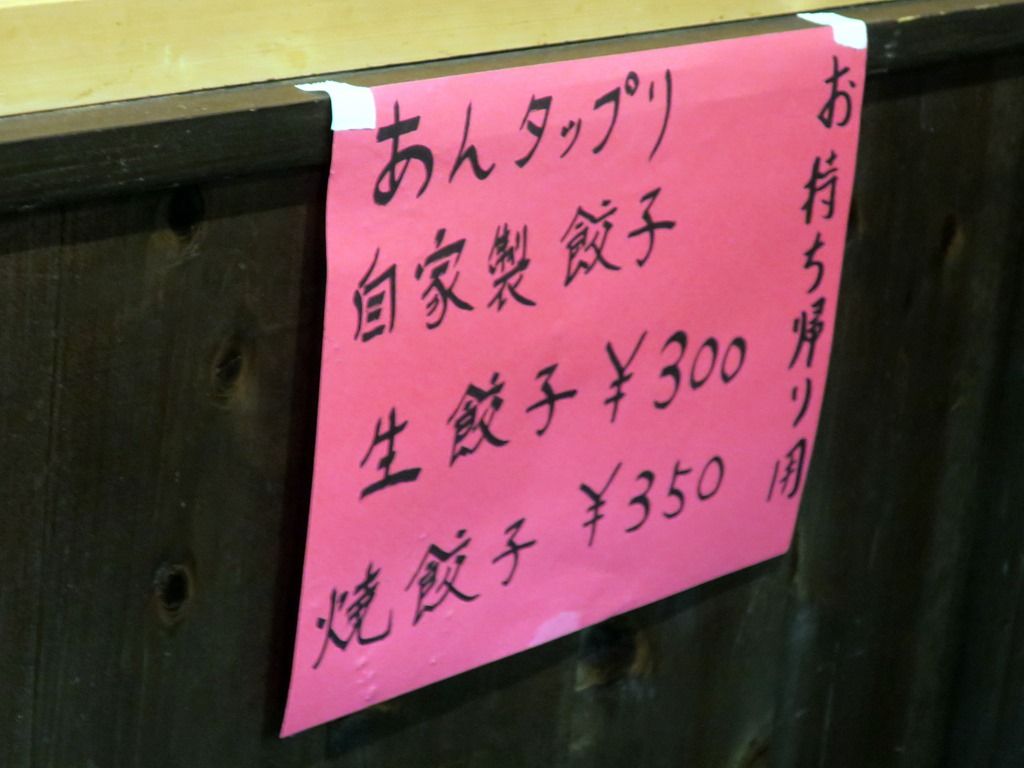 お持ち帰り用
あんタップリ
自家製餃子
生餃子¥300
焼餃子¥350